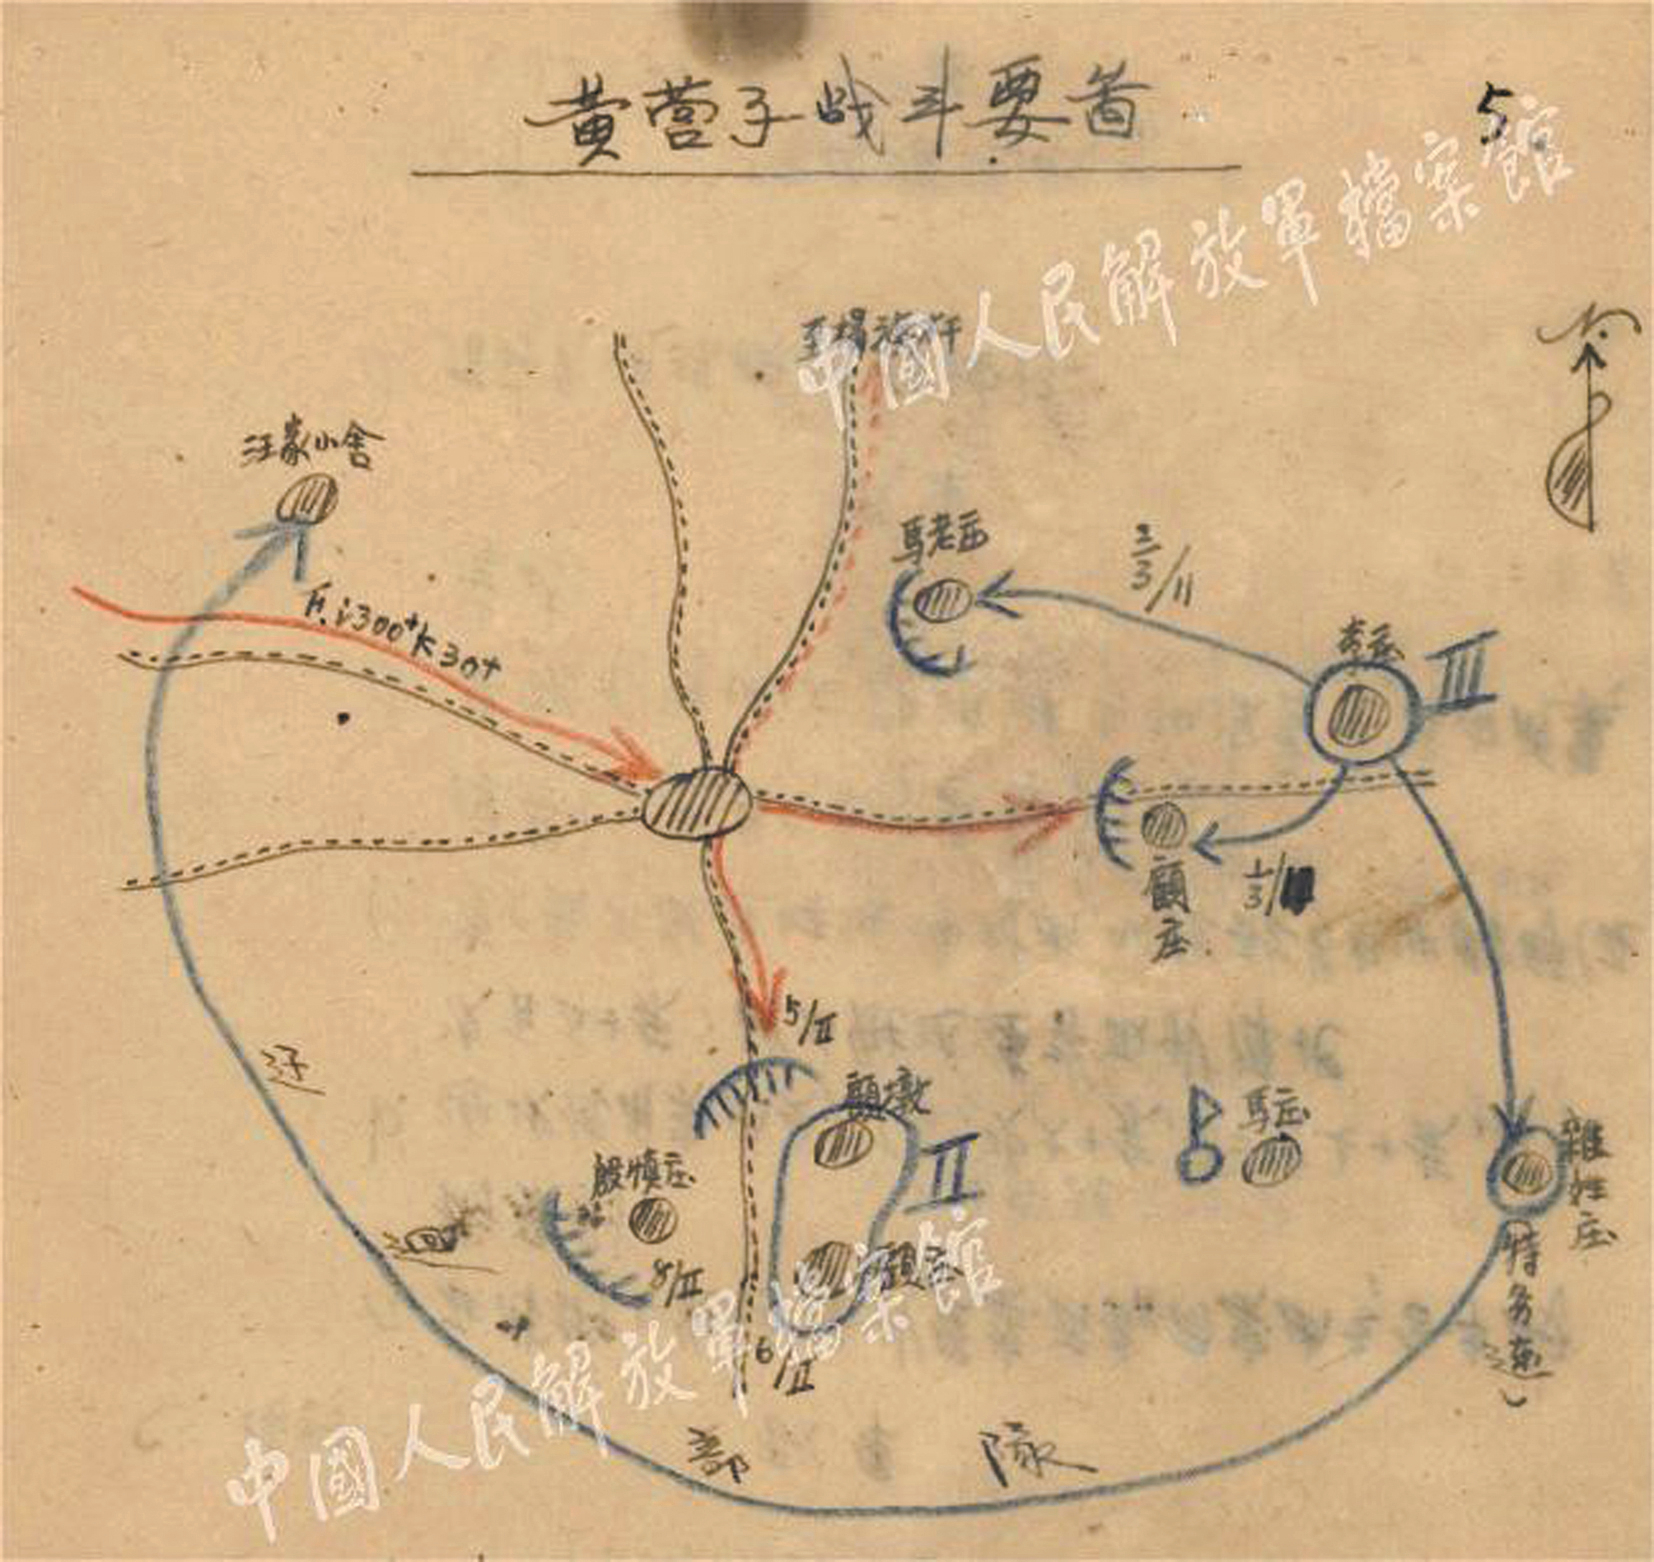 黄营子战斗要畣
5
中國人民解放軍檔案館
汪家小舍
F.i300+k30+
馬老庄
2/3/11
李庄
III
顧庄
1/3/
5/II
顧墩
II
馬庄
殷慎庄
8/II
6/II
雜姓庄
(特务連)
迂
迴
部
隊
中國人民解放軍檔案館